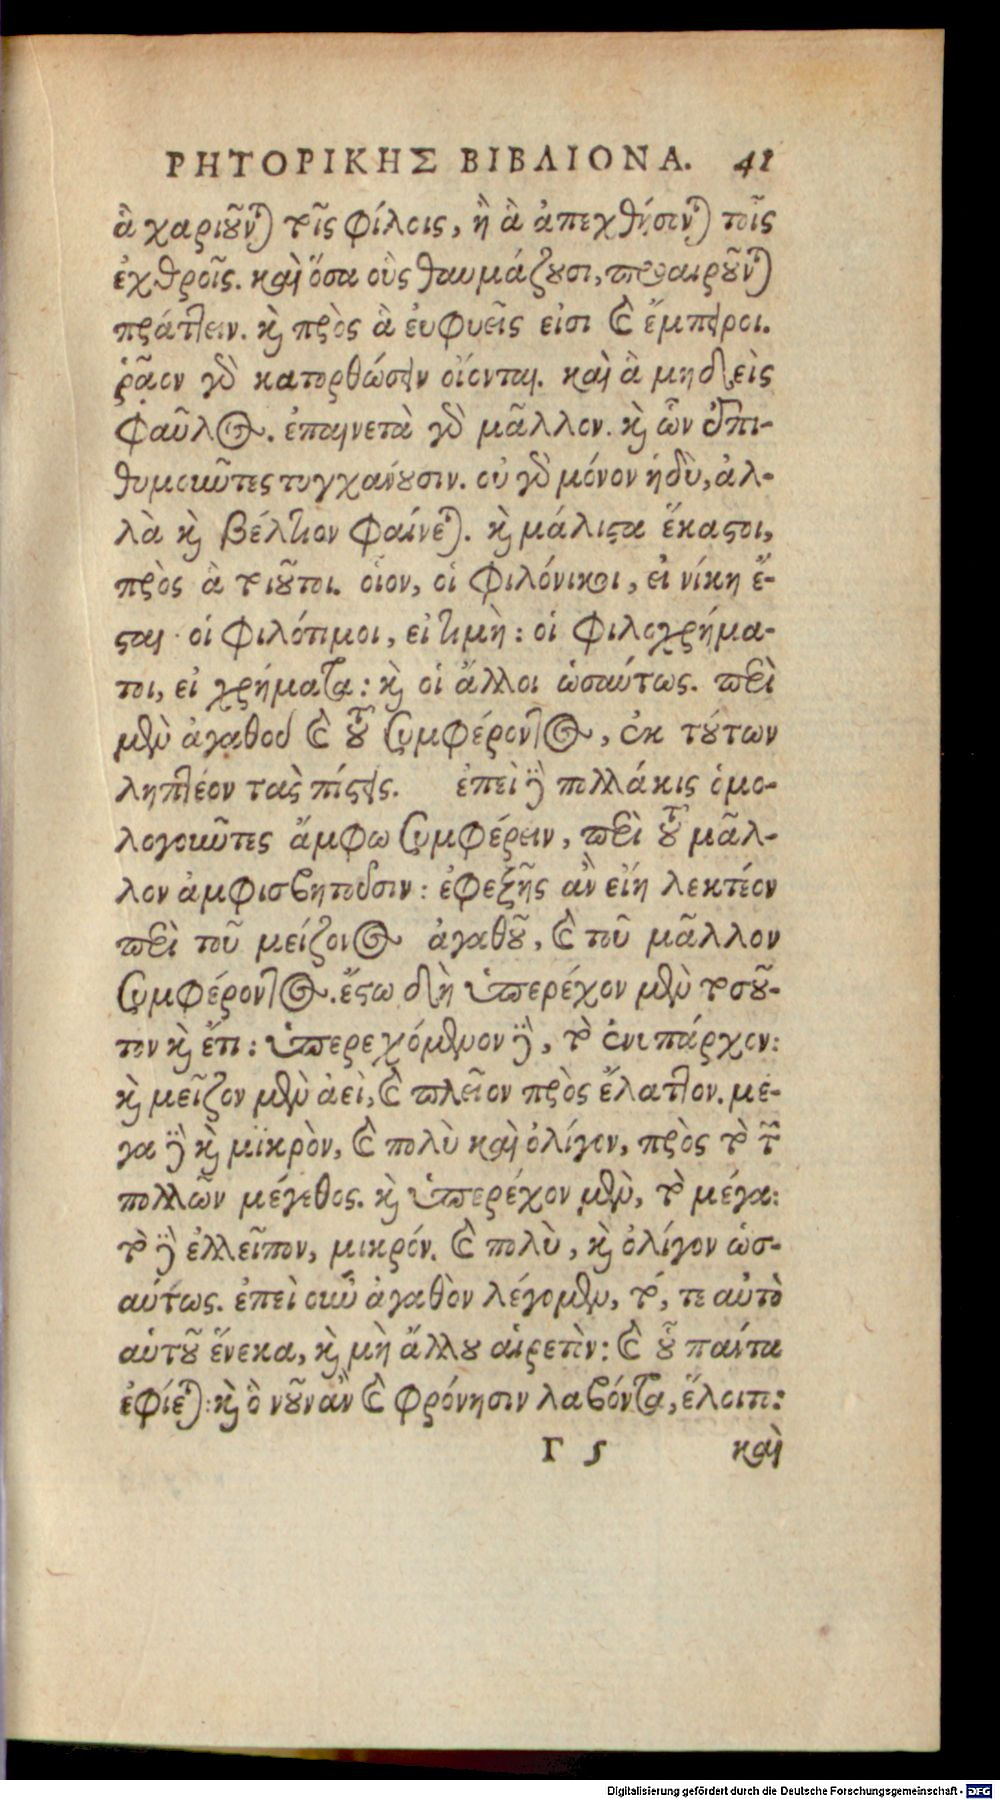 ΡΗΤΟΡΙΚΗΣ ΒΙΒΛΙΟΝ Α. 41
ἃ χαριοῦνται τοῖς φίλοις, ἢ ἃ ἀπεχθήσονται τοῖς
ἐχθροῖς. καὶ ὅσα οὓς θαυμάζουσι, προαιροῦνται
πράττειν. καὶ πρὸς ἃ εὐφυεῖς εἰσι καὶ ἔμπειροι.
ῥᾷον γὰρ κατορθώσειν οἴονται. καὶ ἃ μηδεὶς
φαῦλος. ἐπαινετὰ γὰρ μᾶλλον. καὶ ὧν ἐπι-
θυμοῦντες τυγχάνουσιν. οὐ γὰρ μόνον ἡδὺ, ἀλ-
λὰ καὶ βέλτιον φαίνεται. καὶ μάλιστα ἕκαστοι,
πρὸς ἃ τοιοῦτοι. οἷον, οἱ φιλόνικοι, εἰ νίκη ἔ-
σται· οἱ φιλότιμοι, εἰ τιμὴ: οἱ φιλοχρήμα-
τοι, εἰ χρήματα: καὶ οἱ ἄλλοι ὡσαύτως. περὶ
μὲν ἀγαθοῦ καὶ τοῦ συμφέροντος, ἐκ τούτων
ληπτέον τὰς πίστεις. ἐπεὶ δὲ πολλάκις ὁμο-
λογοῦντες ἄμφω συμφέρειν, περὶ τοῦ μᾶλ-
λον ἀμφισβητοῦσιν: ἐφεξῆς ἂν εἴη λεκτέον
περὶ τοῦ μείζονος ἀγαθοῦ, καὶ τοῦ μᾶλλον
συμφέροντος. ἔστω δὴ ὑπερέχον μὲν τὸ τοσοῦ-
τον καὶ ἔτι: ὑπερεχόμενον δὲ, τὸ ἐνυπάρχον:
καὶ μεῖζον μὲν ἀεὶ, καὶ πλεῖον πρὸς ἔλαττον. μέ-
γα δὲ καὶ μικρὸν, καὶ πολὺ καὶ ὀλίγον, πρὸς τὸ τῶν
πολλῶν μέγεθος. καὶ ὑπερέχον μὲν, τὸ μέγα:
τὸ δὲ ἐλλεῖπον, μικρόν. καὶ πολὺ, καὶ ὀλίγον ὡσ-
αύτως. ἐπεὶ οὖν ἀγαθὸν λέγομεν, τό, τε αὐτὸ
αὑτοῦ ἕνεκα, καὶ μὴ ἄλλου αἱρετὸν: καὶ οὗ πάντα
ἐφίεται: καὶ ὃ νοῦν ἂν καὶ φρόνησιν λαβόντα, ἕλοιτο:
Γ 5 καὶ
Digitalisierung gefördert durch die Deutsche Forschungsgemeinschaft - DFG